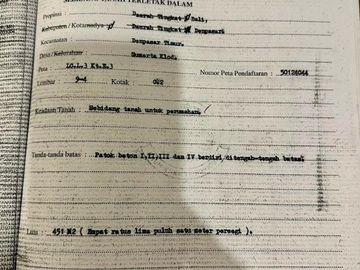 SEBIDANG TANAH TERLETAK DALAM
Propinsi : Daerah Tingkat I Bali,
Kabupaten / Kotamadya : Daerah Tingkat II Denpasar,
Kecamatan : Denpasar Timur.
Desa / Kelurahan : Sumerta Klod.
Peta LG.L.3 Kt.E.3 Nomor Peta Pendaftaran : 50124044
Lembar 9-4 Kotak
Keadaan Tanah : Sebidang tanah untuk perumahan
Tanda-tanda batas : Patok beton I,II,III dan IV berdiri ditengah-tengah batas.
Luas : 451 M2 ( Empat ratus lima puluh satu meter persegi ).